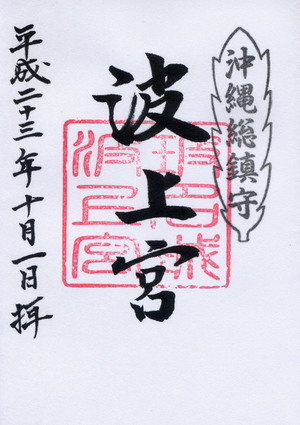 沖縄総鎮守
波上宮
平成二十三年十月一日拝